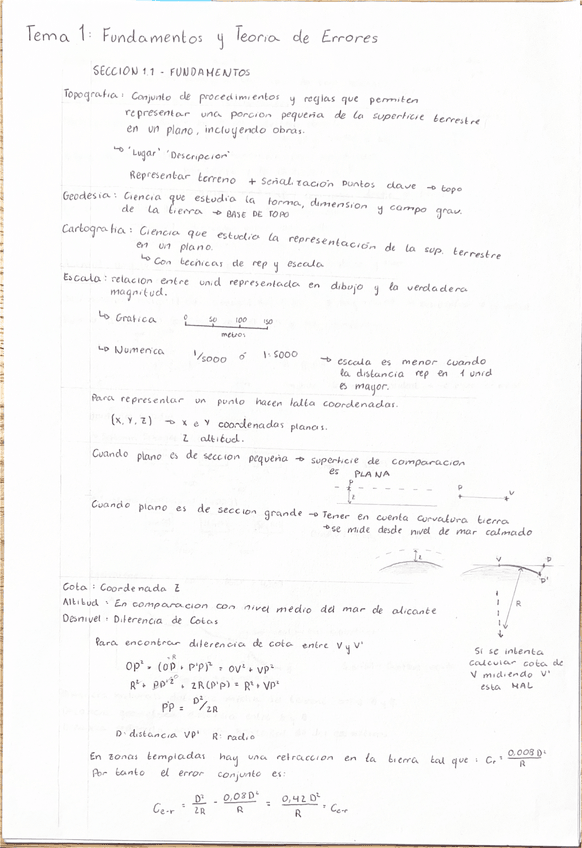 Tema 1: Fundamentos y Teoria de Errores
SECCION 1.1 - FUNDAMENTOS
Topografia: Conjunto de procedimientos y reglas que permiten
representar una porcion pequeña de la superficie terrestre
en un plano, incluyendo obras.
↳ 'Lugar' 'Descripcion'
Representar terreno + Señalización puntos clave → topo
Geodesia: Ciencia que estudia la forma, dimension y campo grav.
de la tierra → BASE DE TOPO
Cartografia: Ciencia que estudia la representación de la sup. terrestre
en un plano.
↳ Con tecnicas de rep y escala
Escala: relacion entre unid representada en dibujo y la verdadera
magnitud.
↳ Grafica 0 50 100 150
metros
↳ Numerica 1/5000 ó 1:5000 → escala es menor cuando
la distancia rep en 1 unid
es mayor.
Para representar un punto hacen falta coordenadas.
(x, y, z) → x e y coordenadas planas.
z altitud.
Cuando plano es de seccion pequeña → superficie de comparacion
es PLANA
P z P V
Cuando plano es de seccion grande → Tener en cuenta curvatura tierra
→ se mide desde nivel de mar calmado
z V P
P'
R
Cota: Coordenada Z
Altitud: En comparacion con nivel medio del mar de alicante
Desnivel: Diferencia de Cotas
Para encontrar diferencia de cota entre V y V'
Si se intenta
calcular cota de
V midiendo V'
esta MAL
OP² = (OP + P'P)² = OV² + VP²
R² + PP'² + 2R(P'P) = R² + VP²
P'P = D²/2R
D: distancia VP' R: radio
En zonas templadas hay una refraccion en la tierra tal que: Cr = 0,008D²/R
Por tanto el error conjunto es:
Ce-r = D²/2R - 0,08D²/R = 0,42D²/R = Ce-r